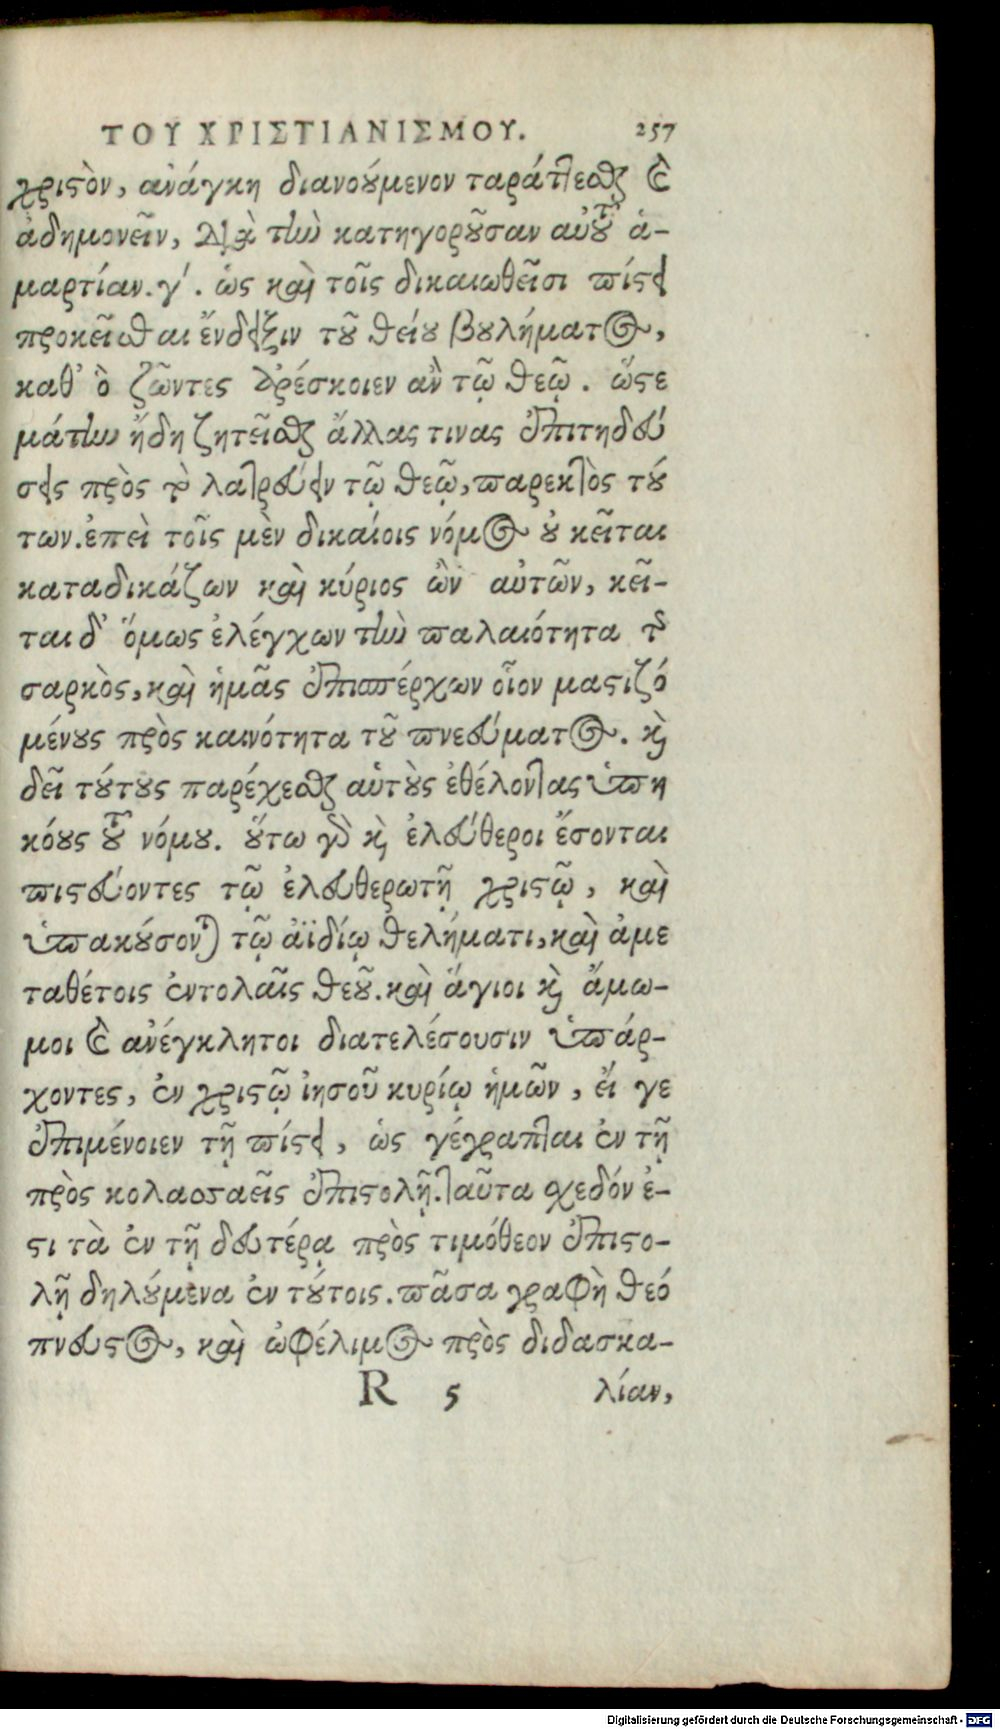 ΤΟΥ ΧΡΙΣΤΙΑΝΙΣΜΟΥ. 257
χριστὸν, ἀνάγκη διανούμενον ταράττεσθαι καὶ
ἀδημονεῖν, διὰ τὴν κατηγοροῦσαν αὐτοῦ ἁ-
μαρτίαν. γ´. ὡς καὶ τοῖς δικαιωθεῖσι πίστει
προκεῖσθαι ἔνδειξιν τοῦ θείου βουλήματος,
καθ᾽ ὃ ζῶντες ἀρέσκοιεν ἂν τῷ θεῷ. ὥστε
μάτην ἤδη ζητεῖσθαι ἄλλας τινας ἐπιτηδεύ
σεις πρὸς τὸ λατρεύειν τῷ θεῷ, παρεκτὸς τού
των. ἐπεὶ τοῖς μὲν δικαίοις νόμος οὐ κεῖται
καταδικάζων καὶ κύριος ὢν αὐτῶν, κεῖ-
ται δ᾽ ὅμως ἐλέγχων τὴν παλαιότητα τῆς
σαρκὸς, καὶ ἡμᾶς ἐπισπέρχων οἷον μαστιζό
μένους πρὸς καινότητα τοῦ πνεύματος. καὶ
δεῖ τούτους παρέχεσθαι αὑτοὺς ἐθέλοντας ὑπη
κόους τοῦ νόμου. οὕτω γὰρ καὶ ἐλεύθεροι ἔσονται
πιστεύοντες τῷ ἐλευθερωτῇ χριστῷ, καὶ
ὑπακούσονται τῷ ἀϊδίῳ θελήματι, καὶ ἀμε
ταθέτοις ἐντολαῖς θεοῦ. καὶ ἅγιοι καὶ ἄμω-
μοι καὶ ἀνέγκλητοι διατελέσουσιν ὑπάρ-
χοντες, ἐν χριστῷ ἰησοῦ κυρίῳ ἡμῶν, εἴ γε
ἐπιμένοιεν τῇ πίστει, ὡς γέγραπται ἐν τῇ
πρὸς κολασσαεῖς ἐπιστολῇ. ταῦτα σχεδόν ἐ-
στι τὰ ἐν τῇ δευτέρᾳ πρὸς τιμόθεον ἐπιστο-
λῇ δηλούμενα ἐν τούτοις. πᾶσα γραφὴ θεό
πνευστος, καὶ ὠφέλιμος πρὸς διδασκα-
R 5 λίαν,
Digitalisierung gefördert durch die Deutsche Forschungsgemeinschaft - DFG